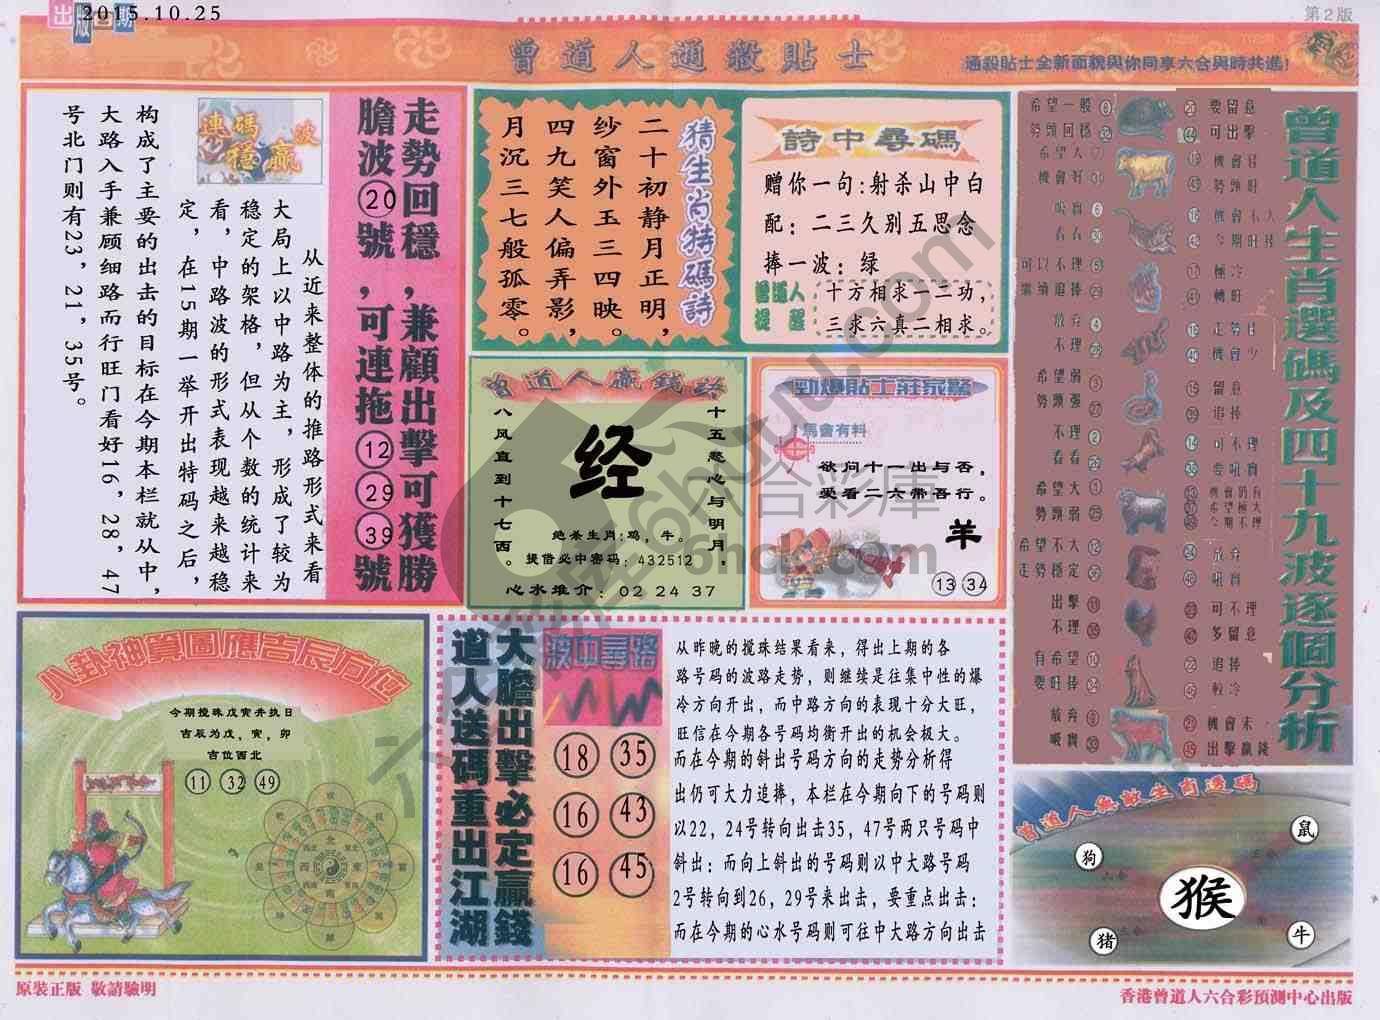 出版日期
2015.10.25
第2版
曾道人通殺貼士
通殺貼士全新面貌與你同享六合與時共進!
走勢回穩,兼顧出擊可獲勝
膽波⑳號,可連拖⑫㉙㊴號
連碼波
穩贏
从近来整体的推路形式来看
大局上以中路为主,形成了较为
稳定的架格,但从个数的统计来
看,中路波的形式表现越来越稳
定,在15期一举开出特码之后,
构成了主要的出击的目标在今期本栏就从中,
大路入手兼顾细路而行旺门看好16,28,47
号北门则有23,21,35号。
猜生肖特碼詩
二十初静月正明,
纱窗外玉三四映。
四九笑人偏弄影,
月沉三七般孤零。
詩中尋碼
赠你一句:射杀山中白
配:二三久别五思念
捧一波:绿
曾道人
提醒
十方相求一二功,
三求六真二相求。
曾道人贏錢路
十五慈心与明月,
八风直到十七西。
经
绝杀生肖:鸡,牛。
提借必中密码:432512
心水推介:02 24 37
勁爆貼士莊家驚
馬會有料
欲问十一出与否,
爱看二六带吾行。
羊
13 34
曾道人生肖選碼及四十九波逐個分析
希望一般
勢頭回穩
要留意
可出擊
希望大
機會好
機會好
勢頭旺
吸寶
看看
機會不大
今期旺捧
可以不理
繼續追捧
極冷
轉旺
放弃
不理
走勢佳
機會少
希望弱
勢頭强
留意
追捧
不理
看看
可不理
要吼實
希望大
勢頭弱
機會仍有
希望極大
今期不理
希望不大
走勢穩定
放弃
吼實
出擊
不理
可不理
多留意
有希望
要旺捧
追捧
較冷
放弃
吸實
機會未
出擊贏錢
八卦神算圖應吉辰方位
今期搅珠戊寅卉执日
吉辰为戊,寅,卯
吉位西北
11 32 49
大膽出擊必定贏錢
道人送碼重出江湖
波中尋路
18 35
16 43
16 45
从昨晚的搅珠结果看来,得出上期的各
路号码的波路走势,则继续是往集中性的爆
冷方向开出,而中路方向的表现十分大旺,
旺信在今期各号码均衡开出的机会极大。
而在今期的斜出号码方向的走势分析得
出仍可大力追捧,本栏在今期向下的号码则
以22,24号转向出击35,47号两只号码中
斜出:而向上斜出的号码则以中大路号码
2号转向到26,29号来出击,要重点出击:
而在今期的心水号码则可往中大路方向出击
曾道人無敵生肖選碼
鼠
狗
猴
猪
牛
原裝正版 敬請驗明
香港曾道人六合彩預測中心出版